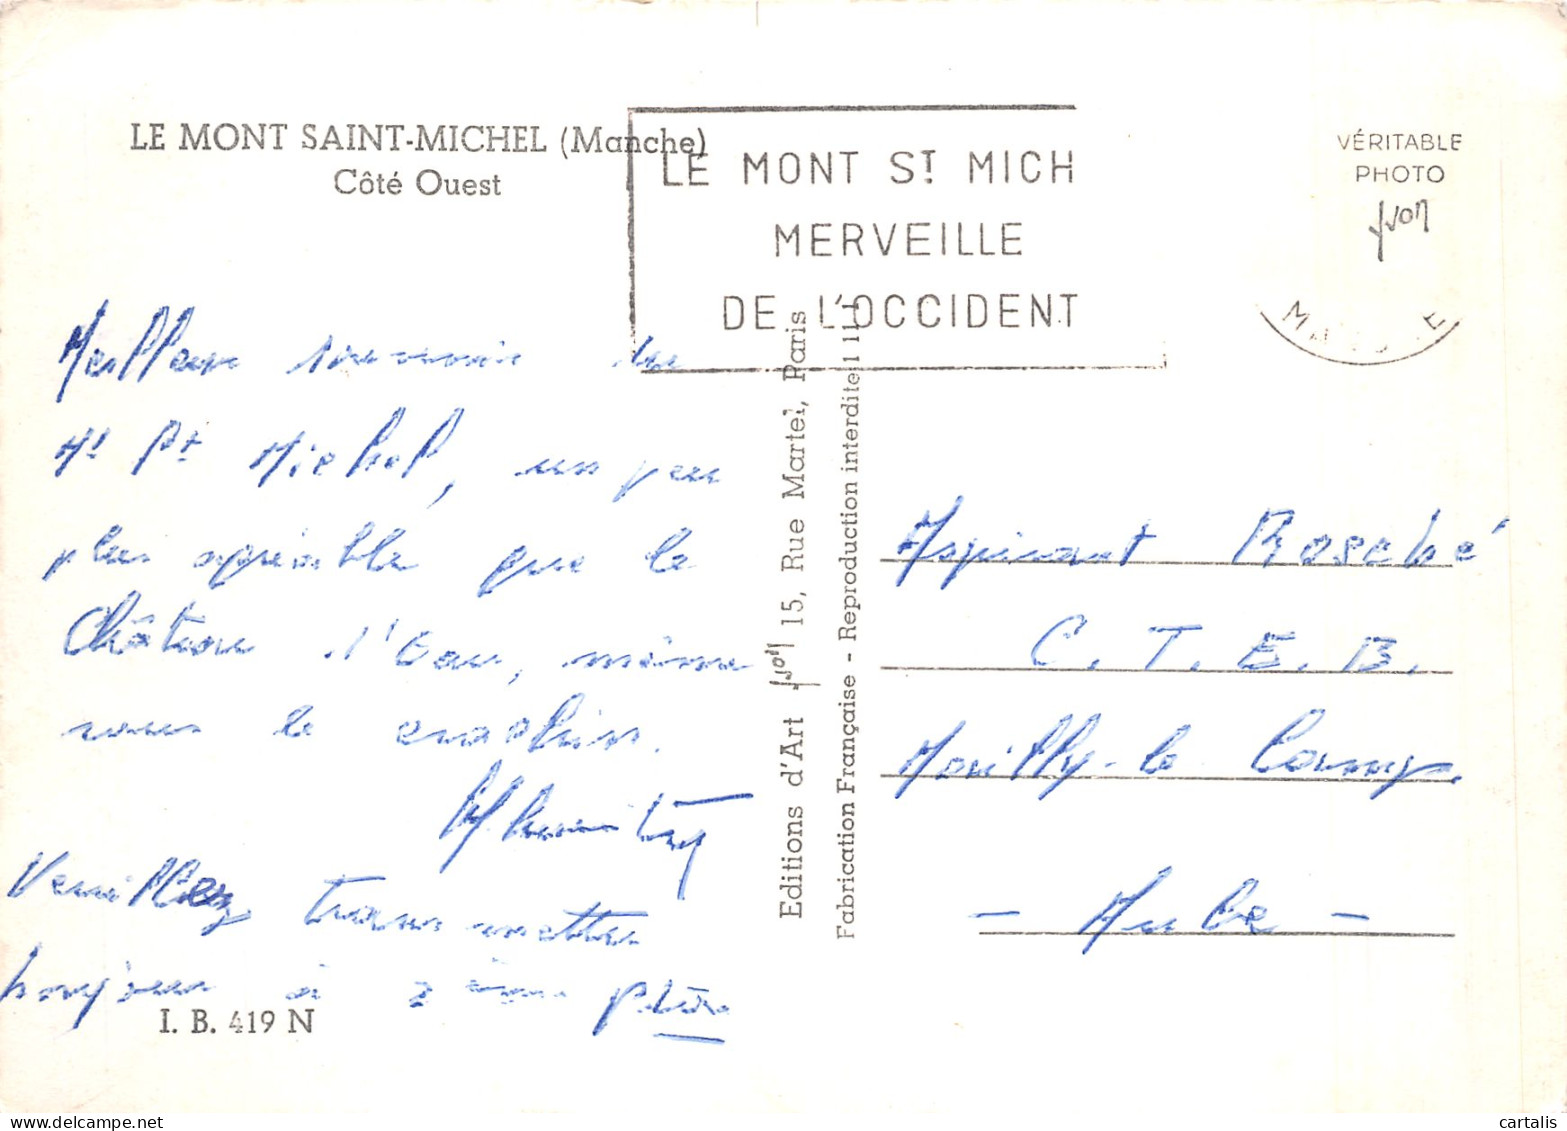 LE MONT SAINT-MICHEL (Manche)
Côté Ouest
LE MONT ST MICH
MERVEILLE
DE L'OCCIDENT
VÉRITABLE
PHOTO
yvon
MANCHE
Meilleur souvenir du
Mt St Michel, un peu
plus agréable que le
Château d'Eau, même
sous le crachin.
Veuillez transmettre
bonjour à 2ème
I. B. 419 N
Editions d'Art yvon 15, Rue Martel, Paris
Fabrication Française - Reproduction interdite
Aspirant Rosebé
C. T. E. B.
Mailly-le Camp.
- Aube -
cartalis